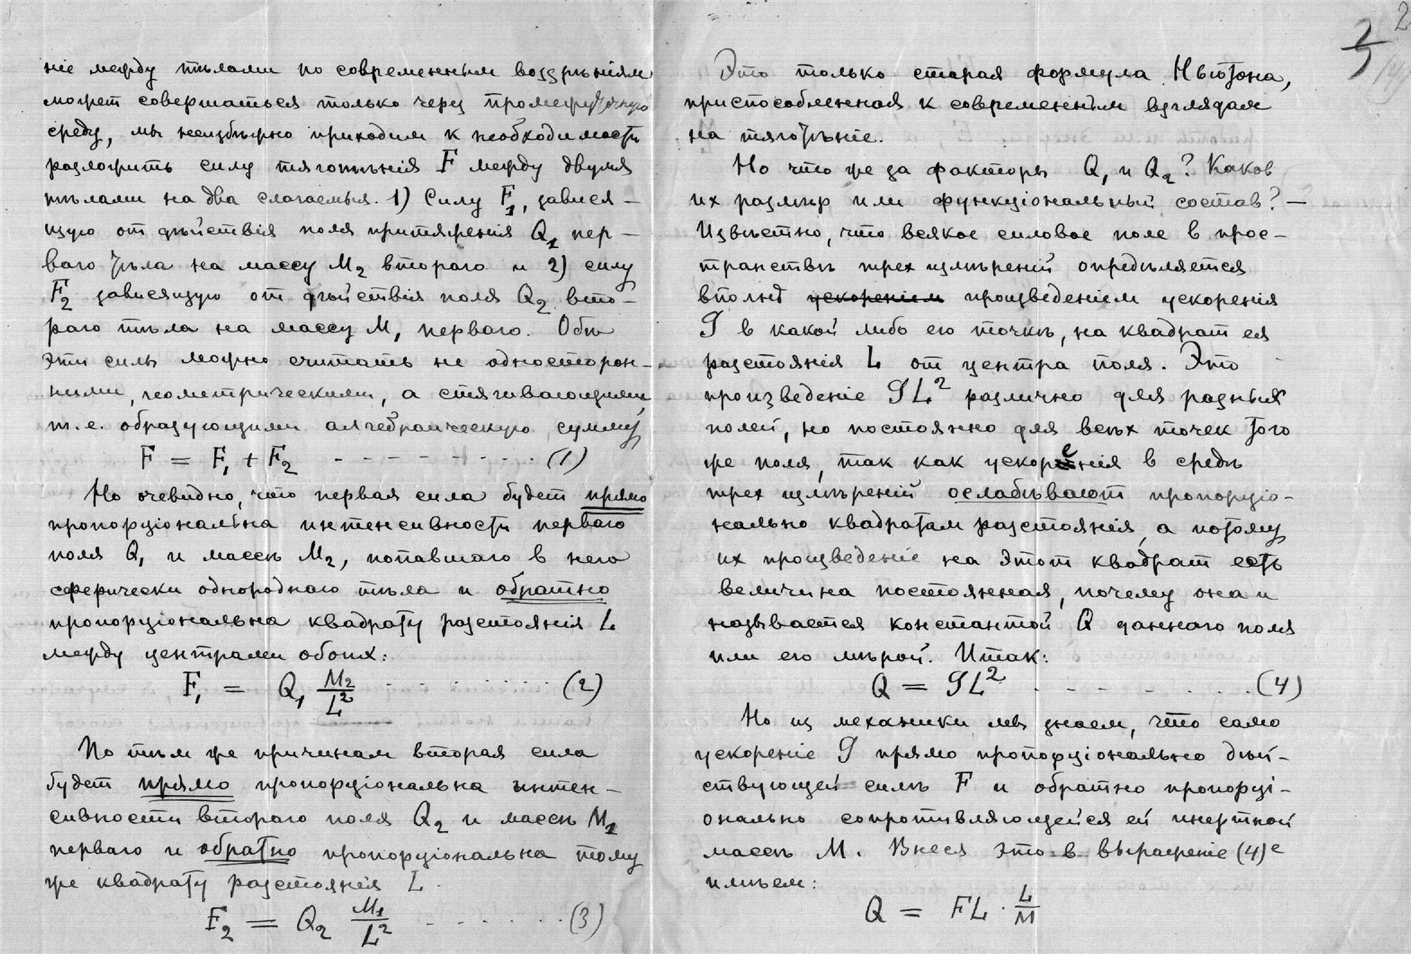 ніе между тѣлами по современнымъ воззрѣніям
может совершаться только через промежуточную
среду, мы неизбѣжно приходим к необходимости
разложить силу тяготѣнія F между двумя
тѣлами на два слагаемыя. 1) Силу F₁, завися-
щую от дѣйствія поля притяженія Q₁ пер-
ваго тѣла на массу M₂ второго и 2) силу
F₂ зависящую от дѣйствія поля Q₂ вто-
рого тѣла на массу M₁ перваго. Обѣ
эти силы можно считать не односторон-
ними, геометрическими, а стягивающими,
т.е. образующими алгебраическую сумму
F = F₁ + F₂ - - - - - - - . . . . (1)
Но очевидно, что первая сила будет прямо
пропорціональна интенсивности перваго
поля Q₁ и массѣ M₂, попавшаго в него
сферически однороднаго тѣла и обратно
пропорціональна квадрату разстоянія L
между центрами обоих:
F₁ = Q₁ M₂/L² . . . . . . . . . (2)
По тѣм же причинам вторая сила
будет прямо пропорціональна интен-
сивности второго поля Q₂ и массѣ M₁
перваго и обратно пропорціональна тому
же квадрату разстоянія L.
F₂ = Q₂ M₁/L² . . . . . . . (3)
2
Это только старая формула Ньютона,
приспособленная к современным взглядам
на тяготѣніе.
Но что же за факторы Q₁ и Q₂? Каков
их размѣр или функціональный состав? —
Извѣстно, что всякое силовое поле в прос-
транствѣ трех измѣреній опредѣляется
вполнѣ ускореніем произведеніем ускоренія
G в какой либо его точкѣ, на квадрат ея
разстоянія L от центра поля. Это
произведеніе GL² различно для разных
полей, но постоянно для всѣх точек того
же поля, так как ускоренія в средѣ
трех измѣреній ослабѣвают пропорціо-
нально квадратам разстоянія, а потому
их произведеніе на этот квадрат есть
величина постоянная, почему она и
называется константой Q даннаго поля
или его мѣрой. Итак:
Q = GL² - - - - . . . . . (4)
Но из механики мы знаем, что само
ускореніе G прямо пропорціонально дѣй-
ствующей силѣ F и обратно пропорці-
онально сопротивляющейся ей инертной
массѣ M. Внеся это в выраженіе (4)е
имѣем:
Q = FL · L/M